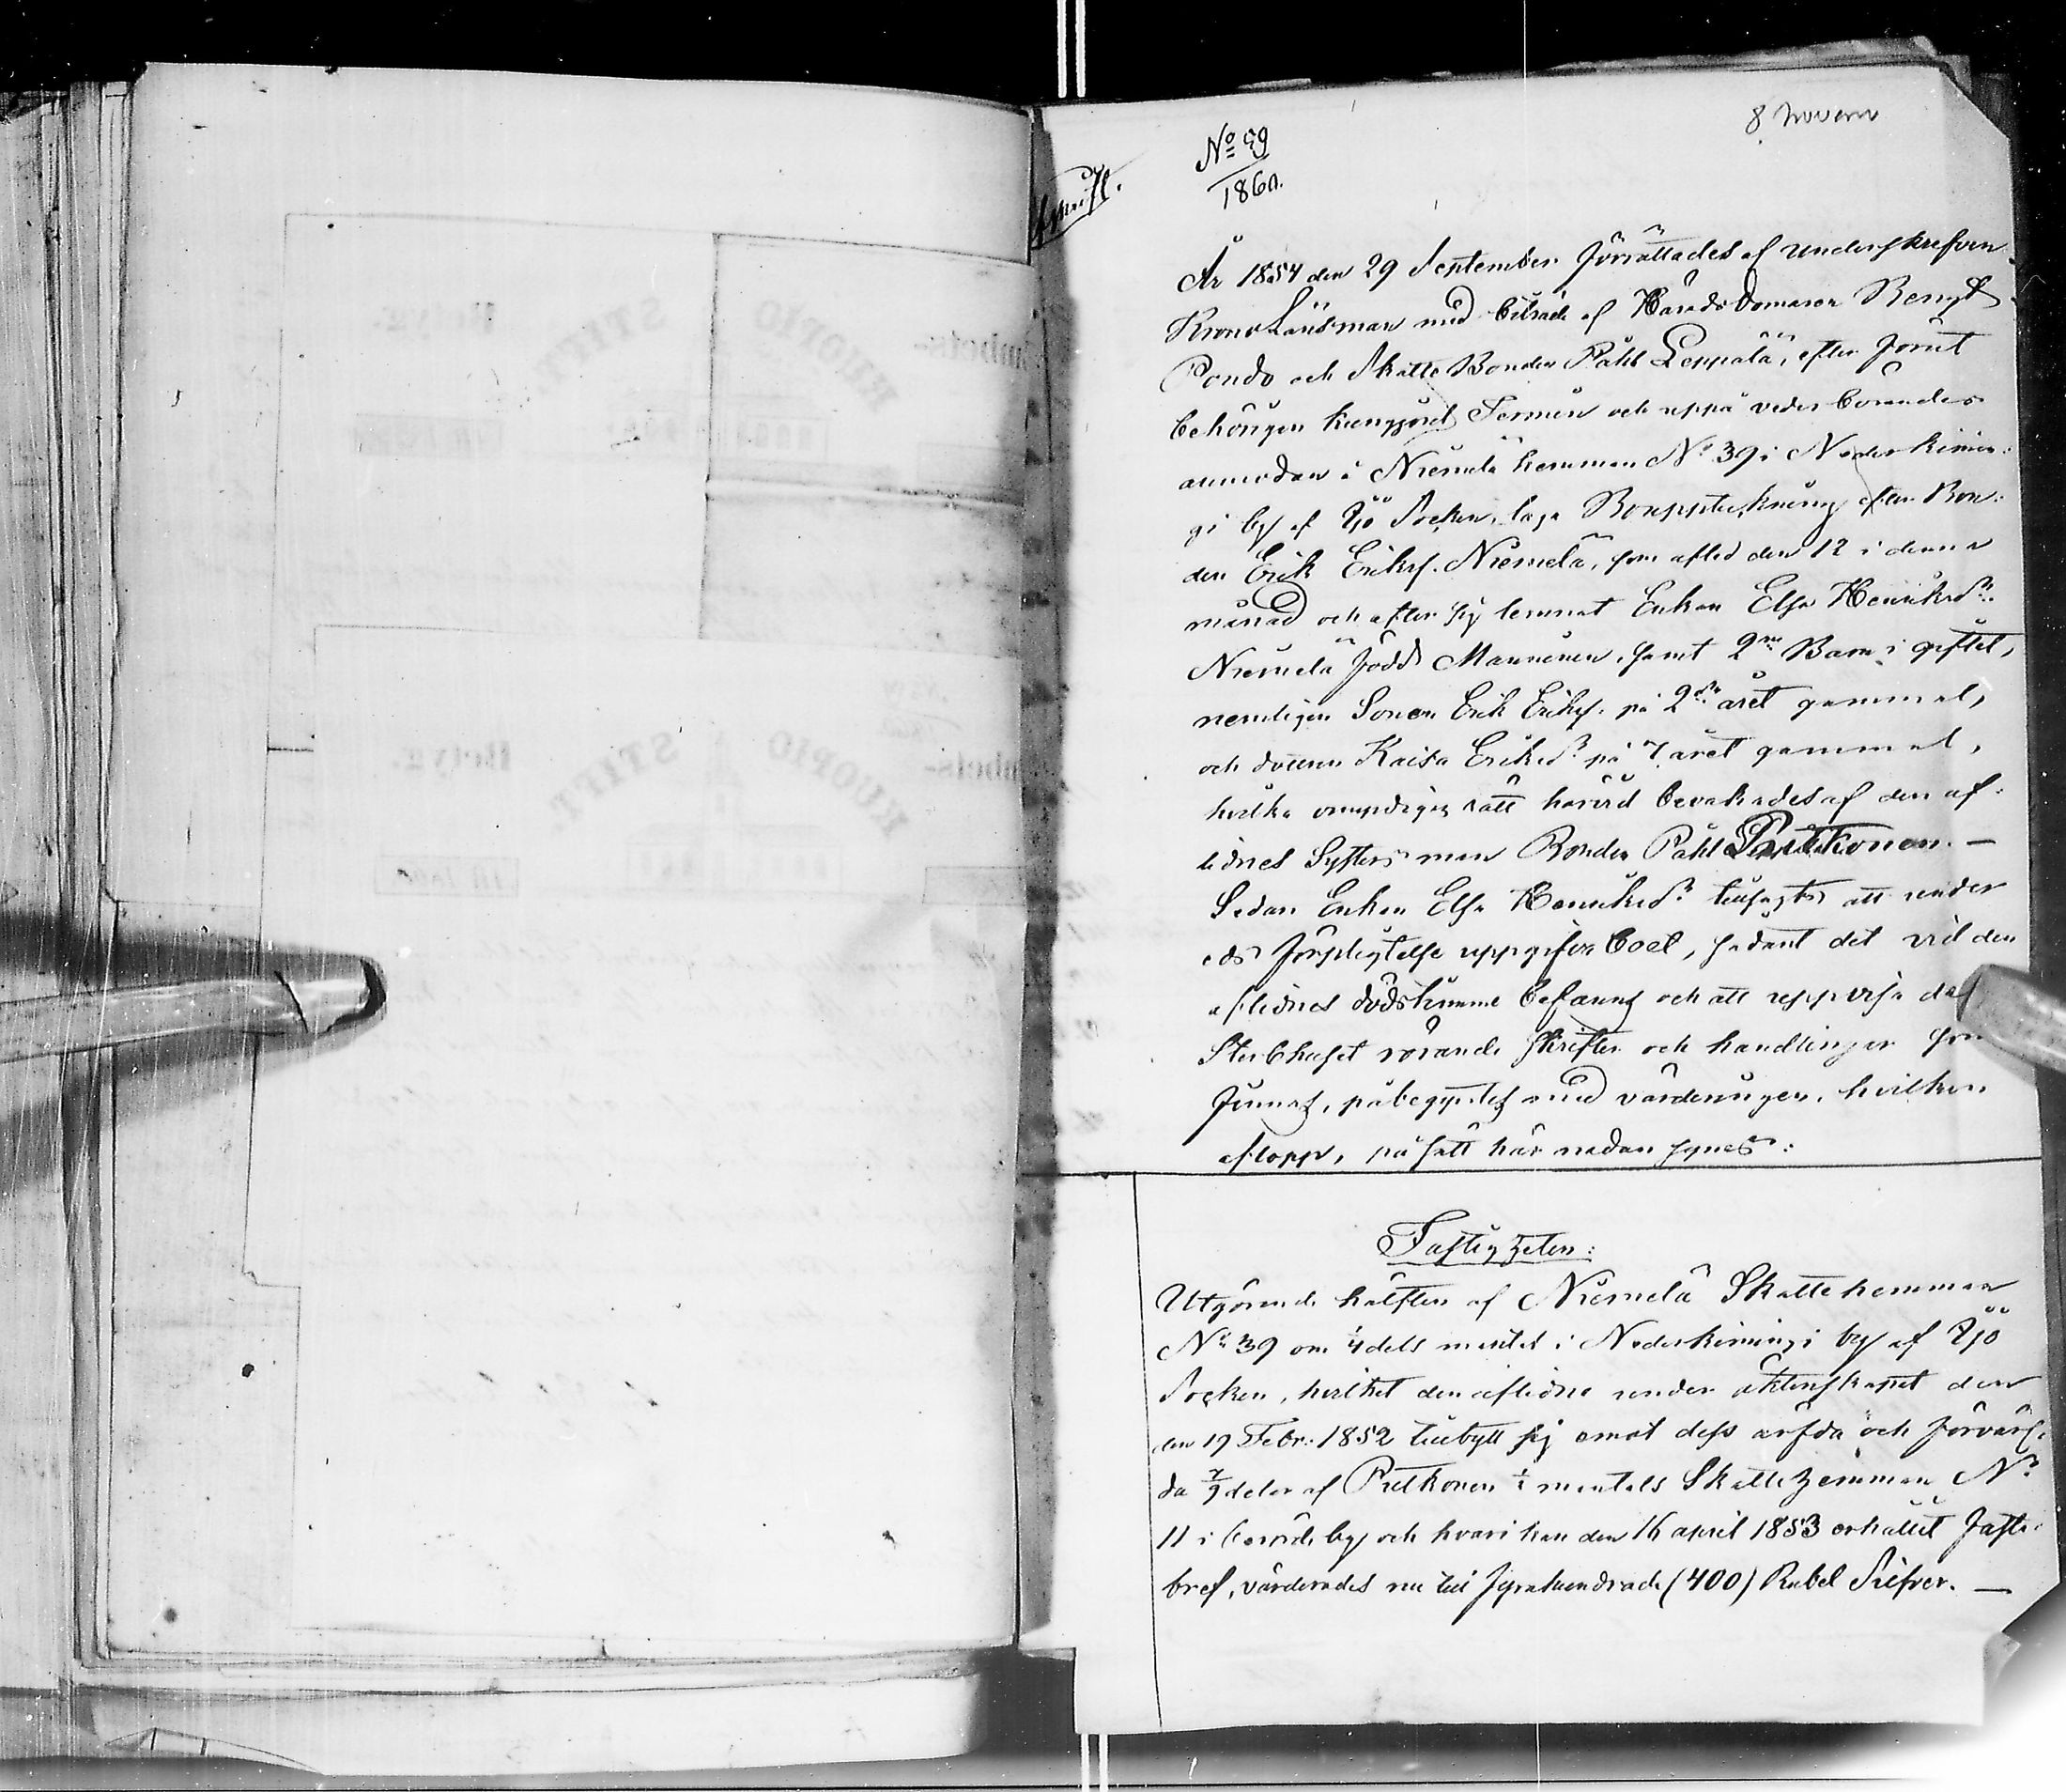 8 novem
No 99
1860.
År 1854 den 29 September förrättades af underskrefven
Krono Länsman med biträde af Härads Domaren Bengt
Pondo och Skatte Bonden Påhl Leppälä, efter förut
behörigen kungjord Termin och uppå vederbörandes
anmodan å Niemelä hemman No 39 i Nederkimin:
gi by af Ijo Socken, laga Bouppteckning efter Bon:
den Erik Eriksf. Niemelä, som afled den 12 i denna
månad och efter sig lemnat Enkan Elsa Henriksdr.
Niemelä född Manninen, samt 2ne Barn i giftet,
nemligen Sonen Erik Eriksf. på 2dra året gammal,
och dottren Kaisa Eriksdr på 7 året gammal,
hvilka omyndiges rätt härvid bevakades af den af:
lidnes Systers man Bonden Påhl Putkonen. —
Sedan Enkan Elsa Henriksdr tillsagts att under
eds förpligtelse uppgifva boet, sådant det vid den
aflidnes dödstimme befanns och att uppvisa de
Sterbhuset rörande skrifter och handlingar som
funnas, påbegyntes med värderingen, hvilken
aflopp, på sätt här nedan synes:
Fastigheten:
Utgörande hälften af Niemelä Skattehemman
No 39 om 1/4 dels mantal i Nederkimingi by af Ijo
Socken, hvilket den aflidne under äktenskapet den
den 19 Febr: 1852 tillbytt sig emot dess ärfda och förvärf:
da 7/9 delar af Putkonen mantals Skattehemman No
11 i berörde by och hvari han den 16 april 1853 erhållit faste:
bref, värderades nu till fyrahundrade (400) Rubel Silfver. —